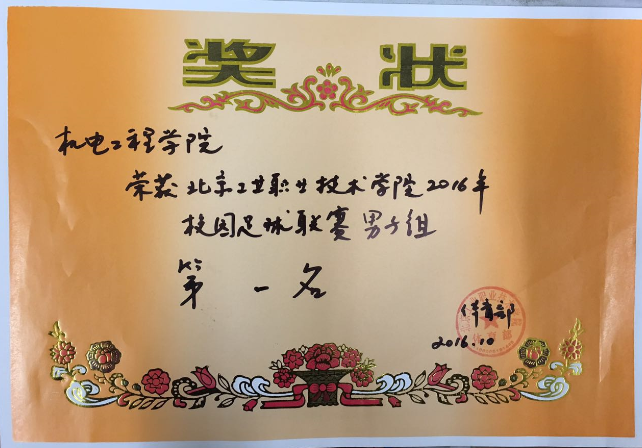 奖状
机电工程学院
荣获北京工业职业技术学院2016年
校园足球联赛男子组
第一名
体育部
2016.10